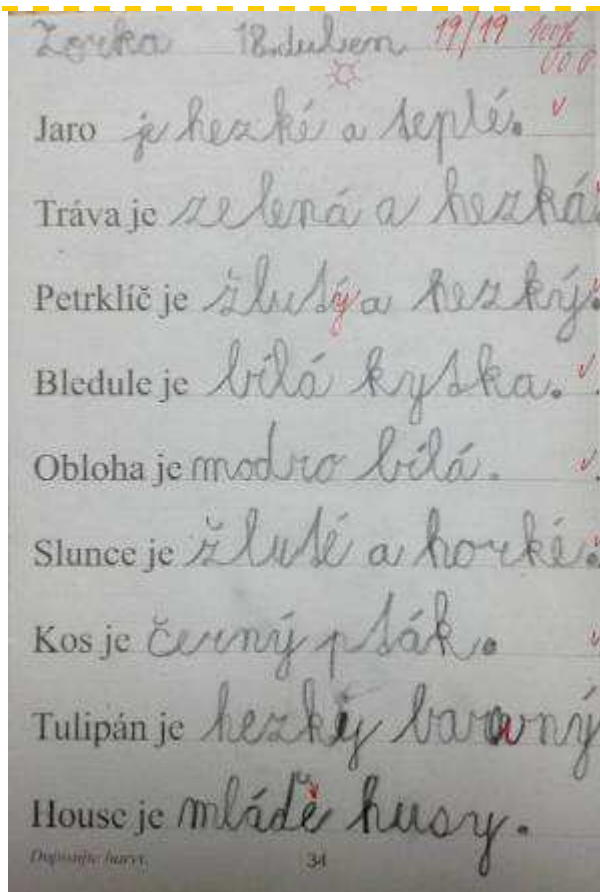 Zorka 18.dubem 19/19 100%
Jaro je hezké a teplé.
Tráva je zelená a hezká.
Petrklíč je žlutý a hezký.
Bledule je bílá kytka.
Obloha je modro bílá.
Slunce je žluté a horké.
Kos je černý pták.
Tulipán je hezký barevný
House je mládě husy.
Doplňujte barvy. 34